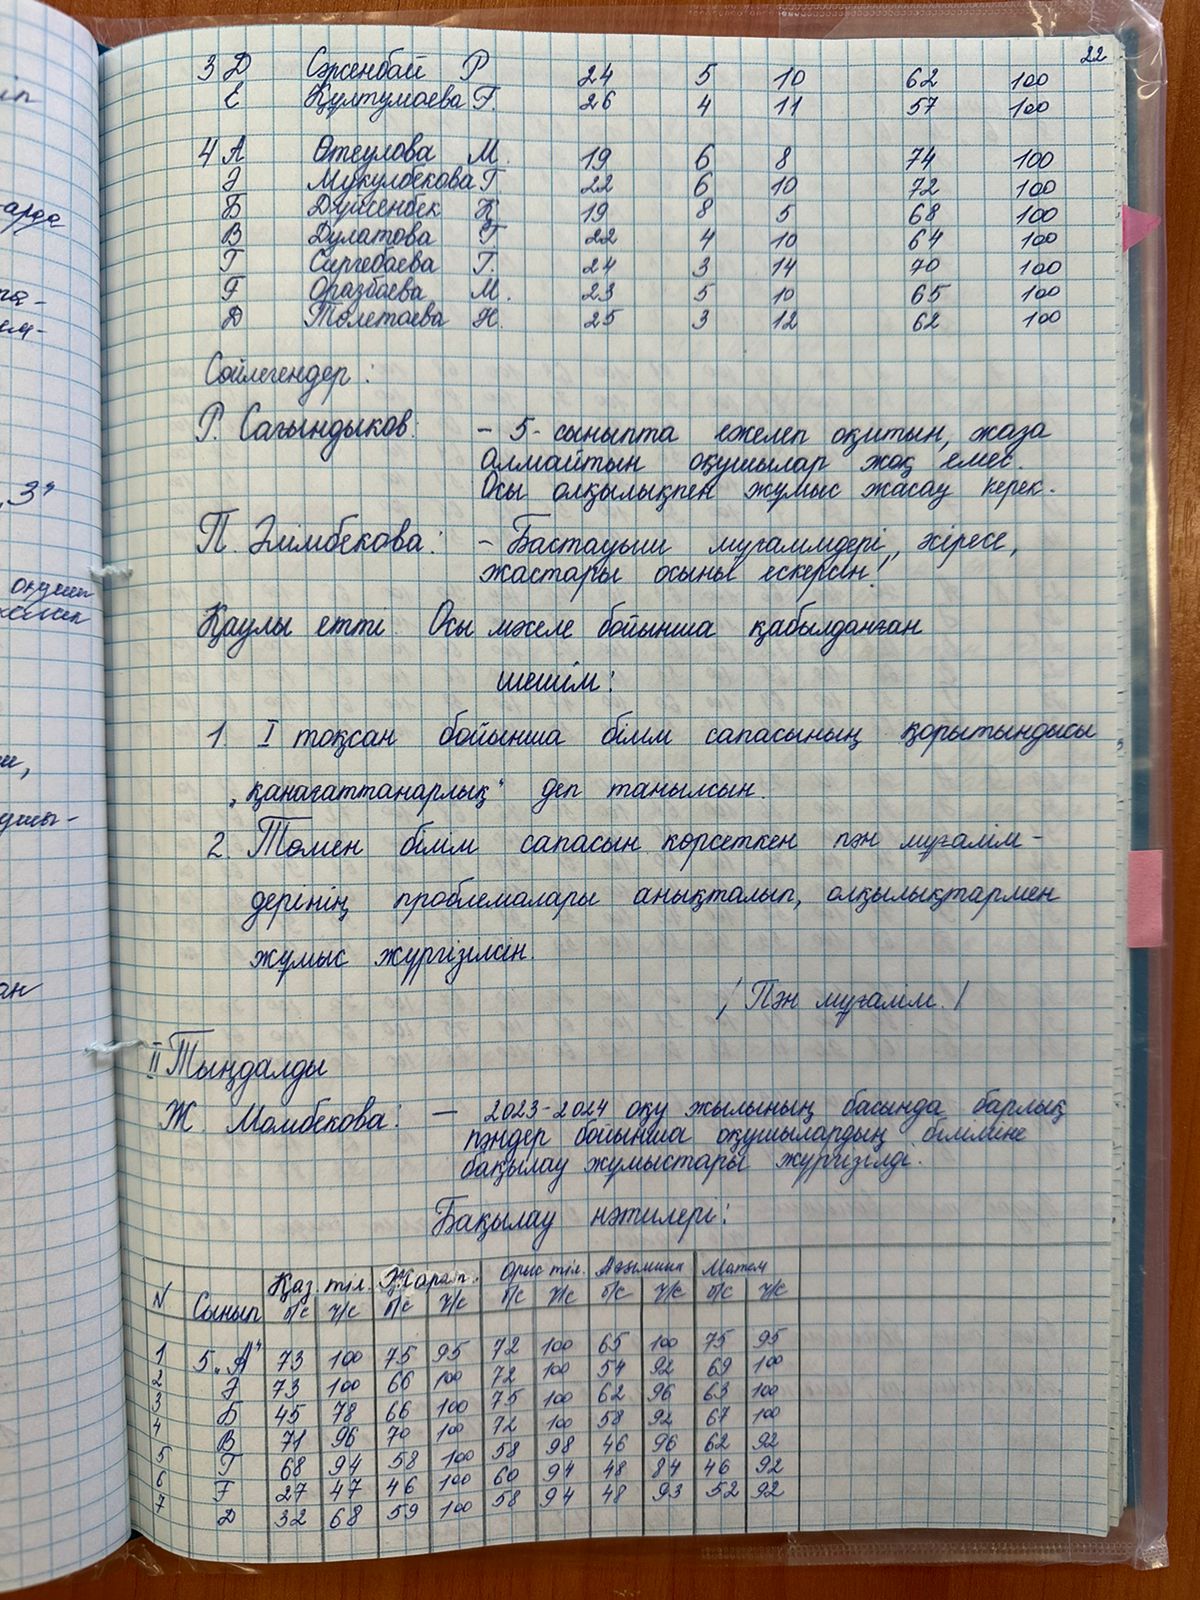 22
3 Д Сәрсенбай Р 24 5 10 62 100
Е Құлтумаева Г. 26 4 11 57 100
4 А Өтеулова М. 19 6 8 74 100
Ә Мукулбекова Г 22 6 10 72 100
Б Дүйсенбек Қ 19 8 5 68 100
В Дулатова Г 22 4 10 64 100
Г Сиргебаева Г. 24 3 14 70 100
Ғ Оразбаева М. 23 5 10 65 100
Д Төлетаева Н. 25 3 12 62 100
Сөйлегендер:
Р. Сағындыков: – 5-сыныпта ежелеп оқитын, жаза
алмайтын оқушылар жоқ емес.
Осы олқылықпен жұмыс жасау керек.
П. Әлімбекова: – Бастауыш мұғалімдері, әсіресе,
жастары осыны ескерсін!
Қаулы етті Осы мәселе бойынша қабылданған
шешім:
1. I тоқсан бойынша білім сапасының қорытындысы
„қанағаттанарлық" деп танылсын.
2. Төмен білім сапасын көрсеткен пән мұғалім-
дерінің проблемалары анықталып, олқылықтармен
жұмыс жүргізілсін.
/ Пән мұғалім. /
II Тыңдалды
Ж. Момбекова: – 2023-2024 оқу жылының басында барлық
пәндер бойынша оқушылардың біліміне
бақылау жұмыстары жүргізілді.
Бақылау нәтилері:
N Сынып Қаз. тіл. Жарат. Орыс тіл. Ағылшын Матем
б/с ү/с б/с ү/с б/с ү/с б/с ү/с б/с ү/с
1 5 „А" 73 100 75 95 72 100 65 100 75 95
2 Ә 73 100 66 100 72 100 54 92 69 100
3 Б 45 78 66 100 75 100 62 96 63 100
4 В 71 96 70 100 72 100 58 92 67 100
5 Г 68 94 58 100 58 98 46 96 62 92
6 Ғ 27 47 46 100 60 94 48 84 46 92
7 Д 32 68 59 100 58 94 48 93 52 92